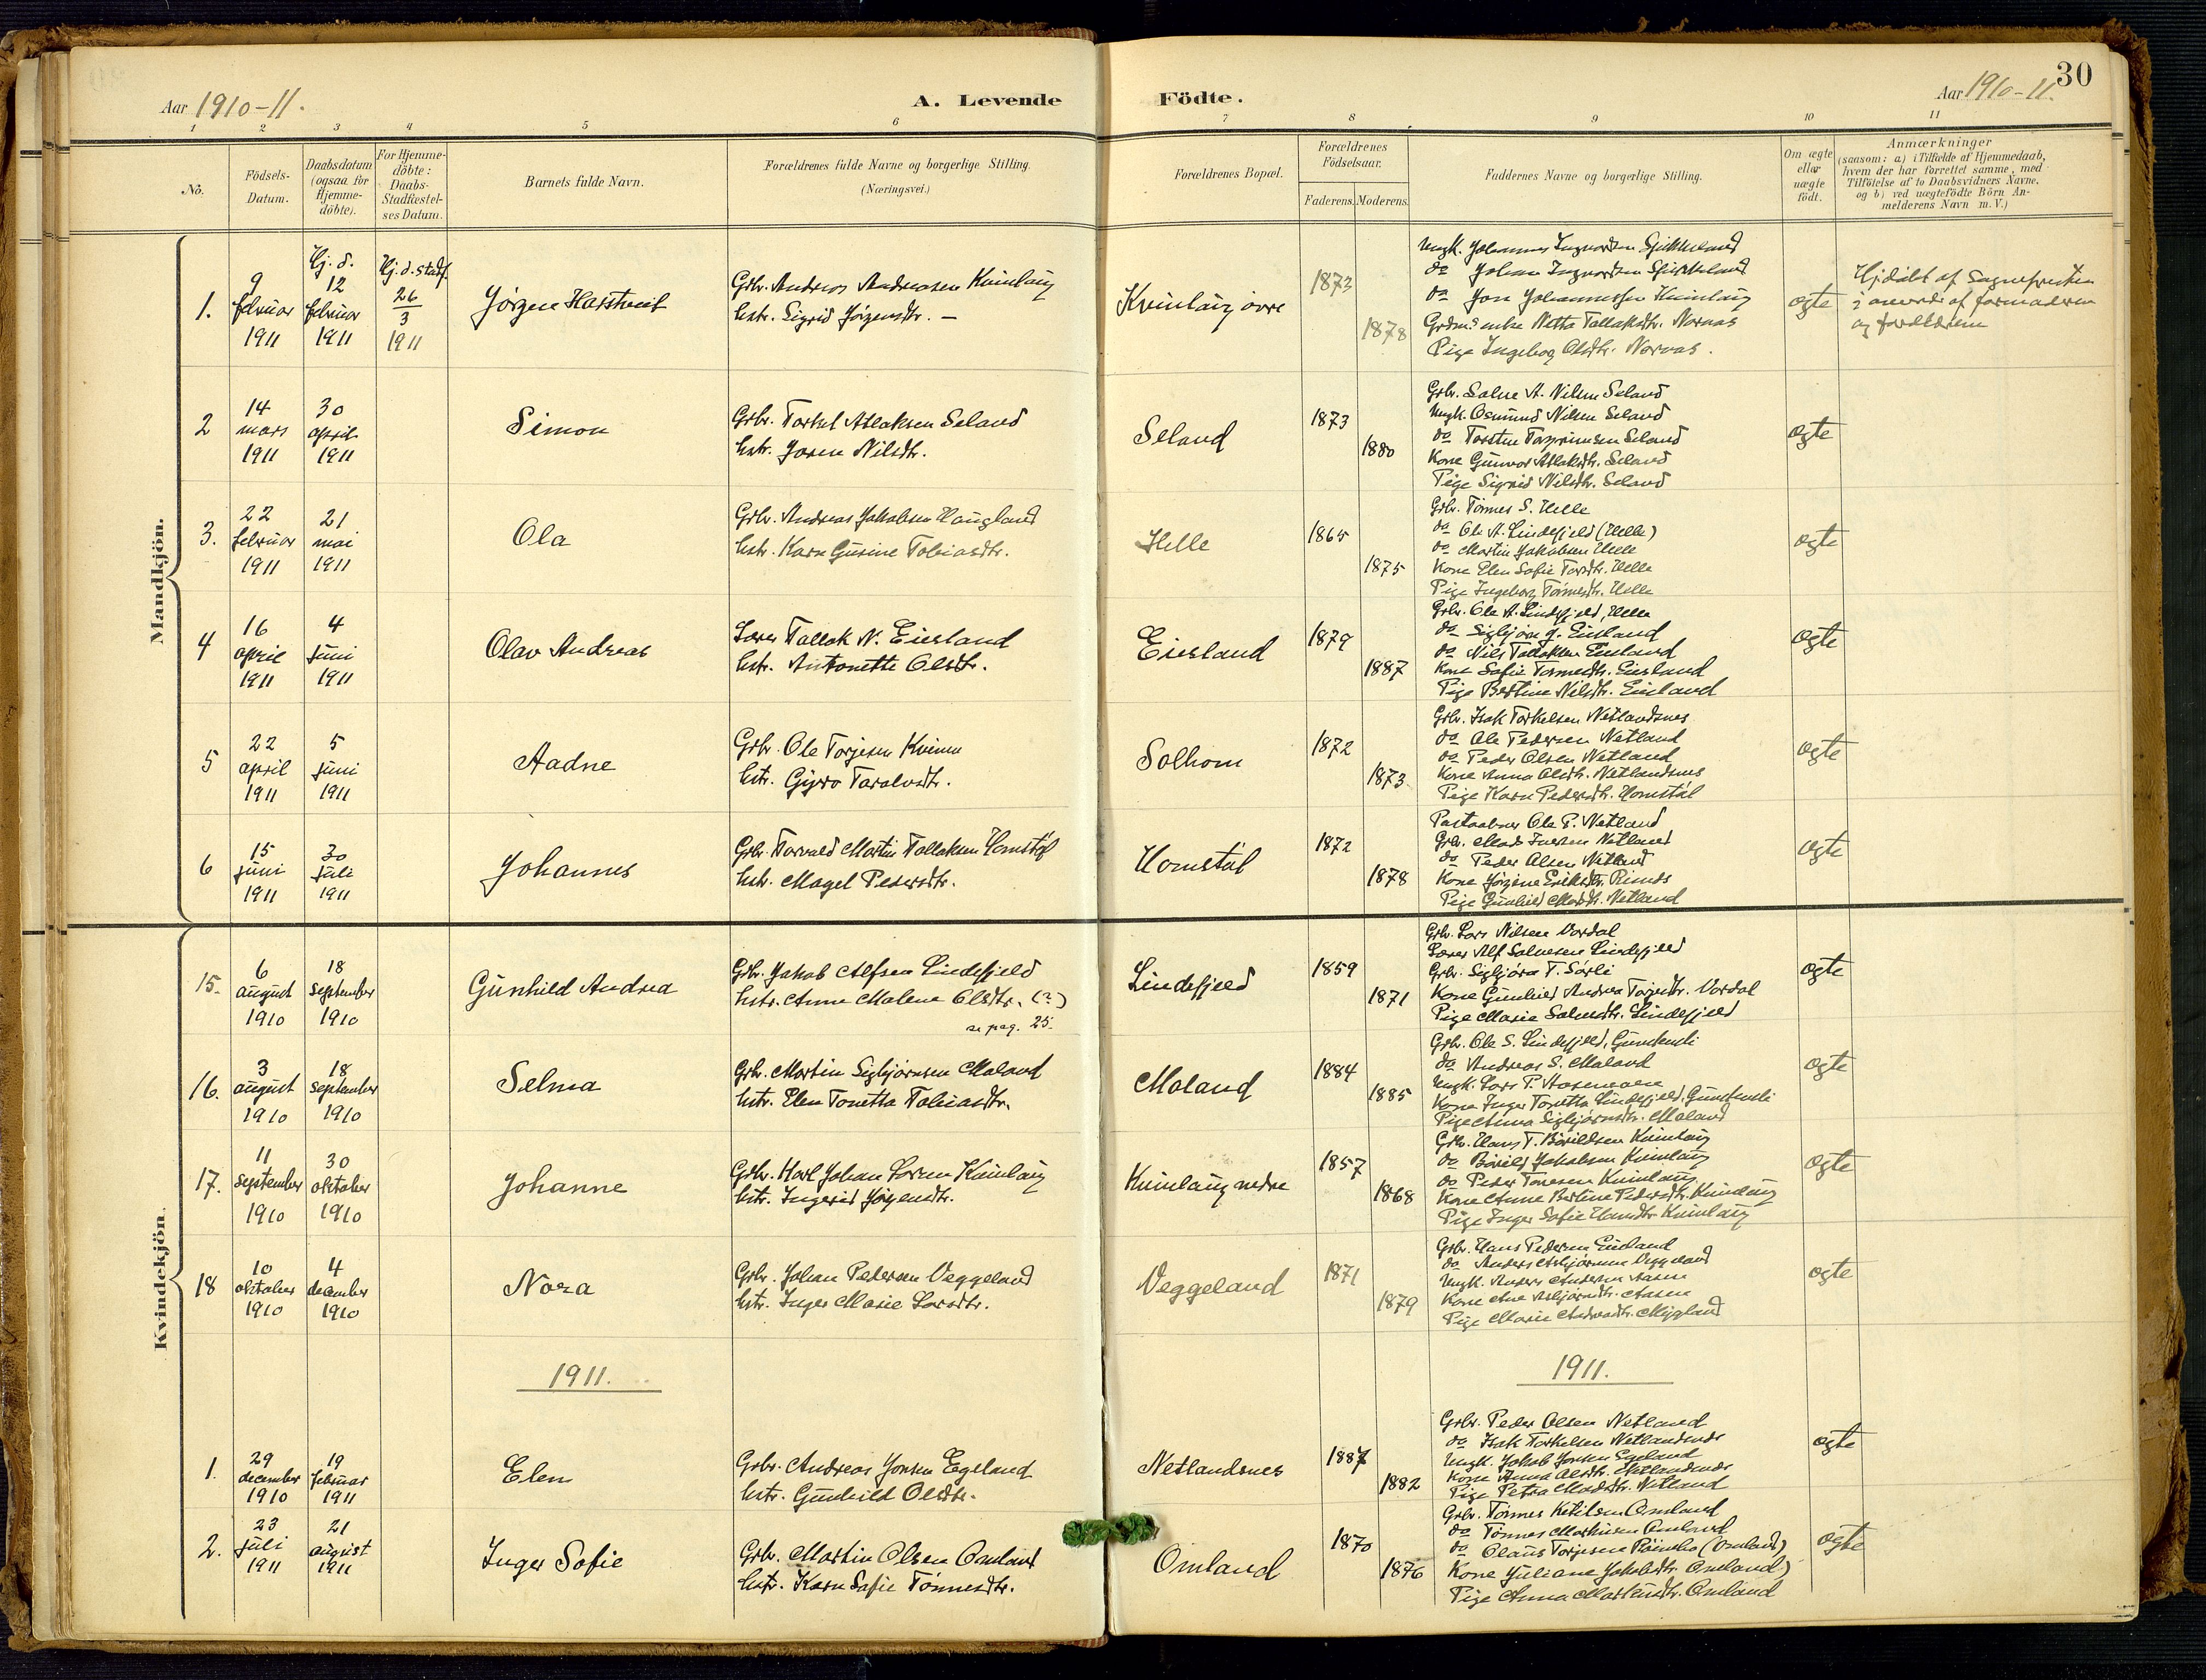 30
Aar 1910-11.
A. Levende Födte.
Aar 1910-11.
1 2 3 4 5 6 7 8 9 10 11
No.
Födsels-Datum.
Daabsdatum (ogsaa for Hjemme-döbte).
For Hjemme-döbte: Daabs-Stadfæstel-ses Datum.
Barnets fulde Navn.
Forældrenes fulde Navne og borgerlige Stilling.
(Næringsvei.)
Forældrenes Bopæl.
Forældrenes Födselsaar.
Faderens. Moderens.
Faddernes Navne og borgerlige Stilling.
Om ægte eller uægte födt.
Anmærkninger
(saasom: a) i Tilfælde af Hjemmedaab,
hvem der har forrettet samme, med
Tilföielse af to Daabsvidners Navne,
og b) ved uægtefödte Börn An-
melderens Navn m. V.)
Mandkjön.
1. 9 februar 1911
Hj. d. 12 februar 1911
Hj. d. stadf. 26/3 1911
Jörgen Harstveit
Grbr. Andreas Andreasen Kvinlaug
hstr. Sigrid Jörgensdtr. —
Kvinlaug övre
1873
1878
Ungk. Johannes Ingvardsen
do Johan Ingvardsen
do Jon Johannessen Kvinlaug
Grdms enke Netta Tallaksdtr. Narvas
Pige Ingeborg Olsdtr. Narvas.
ægte
Hjdöbt af Sognepresten
i nærvær af
og
2 14 mars 1911
30 april 1911
Simon
Grbr. Torkel Atlaksen Seland
hstr. Joren Nilsdtr.
Seland
1873
1880
Grbr. Salve A. Nilsen Seland
Ungk. Osmund Nilsen Seland
do Torsten Seland
Kone Gunvor Atlaksdtr. Seland
Pige Sigrid Nilsdtr. Seland
ægte
3. 22 februar 1911
21 mai 1911
Ola
Grbr. Andreas Jakobsen Haugland
hstr. Karn Gusine Tobiasdtr.
Helle
1865
1875
Grbr. Tönnes S. Helle
do Ole A. Lindefjeld (Helle)
do Martin Jakobsen Helle
Kone Elen Sofie Torsdtr. Helle
Pige Ingeborg Tönnesdtr. Helle
ægte
4 16 april 1911
4 juni 1911
Olav Andreas
Lærer Tallak N. Eiesland
hstr. Antonette Olsdtr.
Eiesland
1879
1887
Grbr. Ole A. Lindefjeld, Helle
do Sigbjörn G. Eiesland
do Nils Tallaksen Eiesland
Kone Sofie Tönnesdtr. Eiesland
Pige Bertine Nilsdtr. Eiesland
ægte
5 22 april 1911
5 juni 1911
Aadne
Grbr. Ole Torjesen Kvinen
hstr. Gyro Taraldsdtr.
Solhom
1872
1873
Grbr. Isak Torkelsen Netlandsnes
do Ole Pedersen Netland
do Peder Olsen Netland
Kone Anna Olsdtr. Netlandsnes
Pige Karn Pedersdtr. Homstöl
ægte
6 15 juni 1911
30 juli 1911
Johannes
Grbr. Torvald Martin Tallaksen Homstöl
hstr. Magel Pedersdtr.
Homstöl
1872
1878
Postaabner Ole P. Netland
Grbr. Mads Iversen Netland
do Peder Olsen Netland
Kone Jörgine Eriksdtr. Risnes
Pige Gunhild Madsdtr. Netland
ægte
Kvindekjön.
15. 6 august 1910
18 september 1910
Gunhild Andrea
Grbr. Jakob Alfsen Lindefjeld
hstr. Anne Malene Olsdtr. (?)
se pag. 25.
Lindefjeld
1859
1871
Grbr. Lars Nilsen Vordal
Lærer Alf Salvesen Lindefjeld
Grbr. Sigbjörn T. Sörli
Kone Gunhild Andrea Torjesdtr. Vordal
Pige Marie Salvesdtr. Lindefjeld
ægte
16. 3 august 1910
18 september 1910
Selma
Grbr. Martin Sigbjörnsen Moland
hstr. Elen Tonetta Tobiasdtr.
Moland
1884
1885
Grbr. Ole S. Lindefjeld,
do Andreas S. Moland
Ungk. Lars P. Aasemoen
Kone Inger Tonetta Lindefjeld,
Pige Anna Sigbjörnsdtr. Moland
ægte
17. 11 september 1910
30 oktober 1910
Johanne
Grbr. Karl Johan Sörensen Kvinlaug
hstr. Ingerid Jörgensdtr.
Kvinlaug nedre
1857
1868
Grbr. Hans T. Bövildsen Kvinlaug
do Bövild Jakobsen Kvinlaug
do Peder Tönesen Kvinlaug
Kone Anne Bertine Pedersdtr. Kvinlaug
Pige Inger Sofie Hansdtr. Kvinlaug
ægte
18 10 oktober 1910
4 december 1910
Nora
Grbr. Johan Pedersen Veggeland
hstr. Inger Marie Larsdtr.
Veggeland
1871
1879
Grbr. Hans Pedersen Eiesland
do Anders Asbjörnsen Veggeland
Ungk. Anders Andersen Aasen
Kone Ane Asbjörnsdtr. Aasen
Pige Marie Andreasdtr. Mygland
ægte
1911.
1911.
1. 29 december 1910
19 februar 1911
Elen
Grbr. Andreas Jonsen Egeland
hstr. Gunhild Olsdtr.
Netlandsnes
1887
1882
Grbr. Peder Olsen Netland
do Isak Torkelsen Netlandsnes
Ungk. Jakob Jonsen Egeland
Kone Anna Olsdtr. Netlandsnes
Pige Petra Madsdtr. Netland
ægte
2. 23 juli 1911
21 august 1911
Inger Sofie
Grbr. Martin Olsen Omland
hstr. Karn Sofie Tönnesdtr.
Omland
1870
1876
Grbr. Tönnes Ketilsen Omland
do Tönnes Mathisen Omland
do Olaus Torjesen (Omland)
Kone Juliane Jakobsdtr. Omland)
Pige Anna Martinsdtr. Omland
ægte